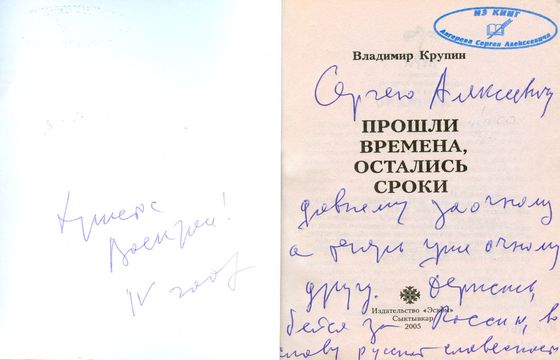 Христос
Воскрес!
IV 2007
ИЗ КНИГ
Ангерова Сергея Алексеевича
Владимир Крупин
Сергею Алексеевичу
ПРОШЛИ
ВРЕМЕНА,
ОСТАЛИСЬ
СРОКИ
давнему заочному
а теперь уже очному
другу. Держись,
Издательство «Эском»
Сыктывкар
2005
бейся за Россию, во
славу русской словесности